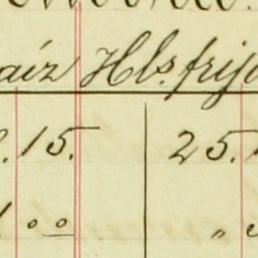 aíz Hls. frijo
.15. 25.
1 00 "